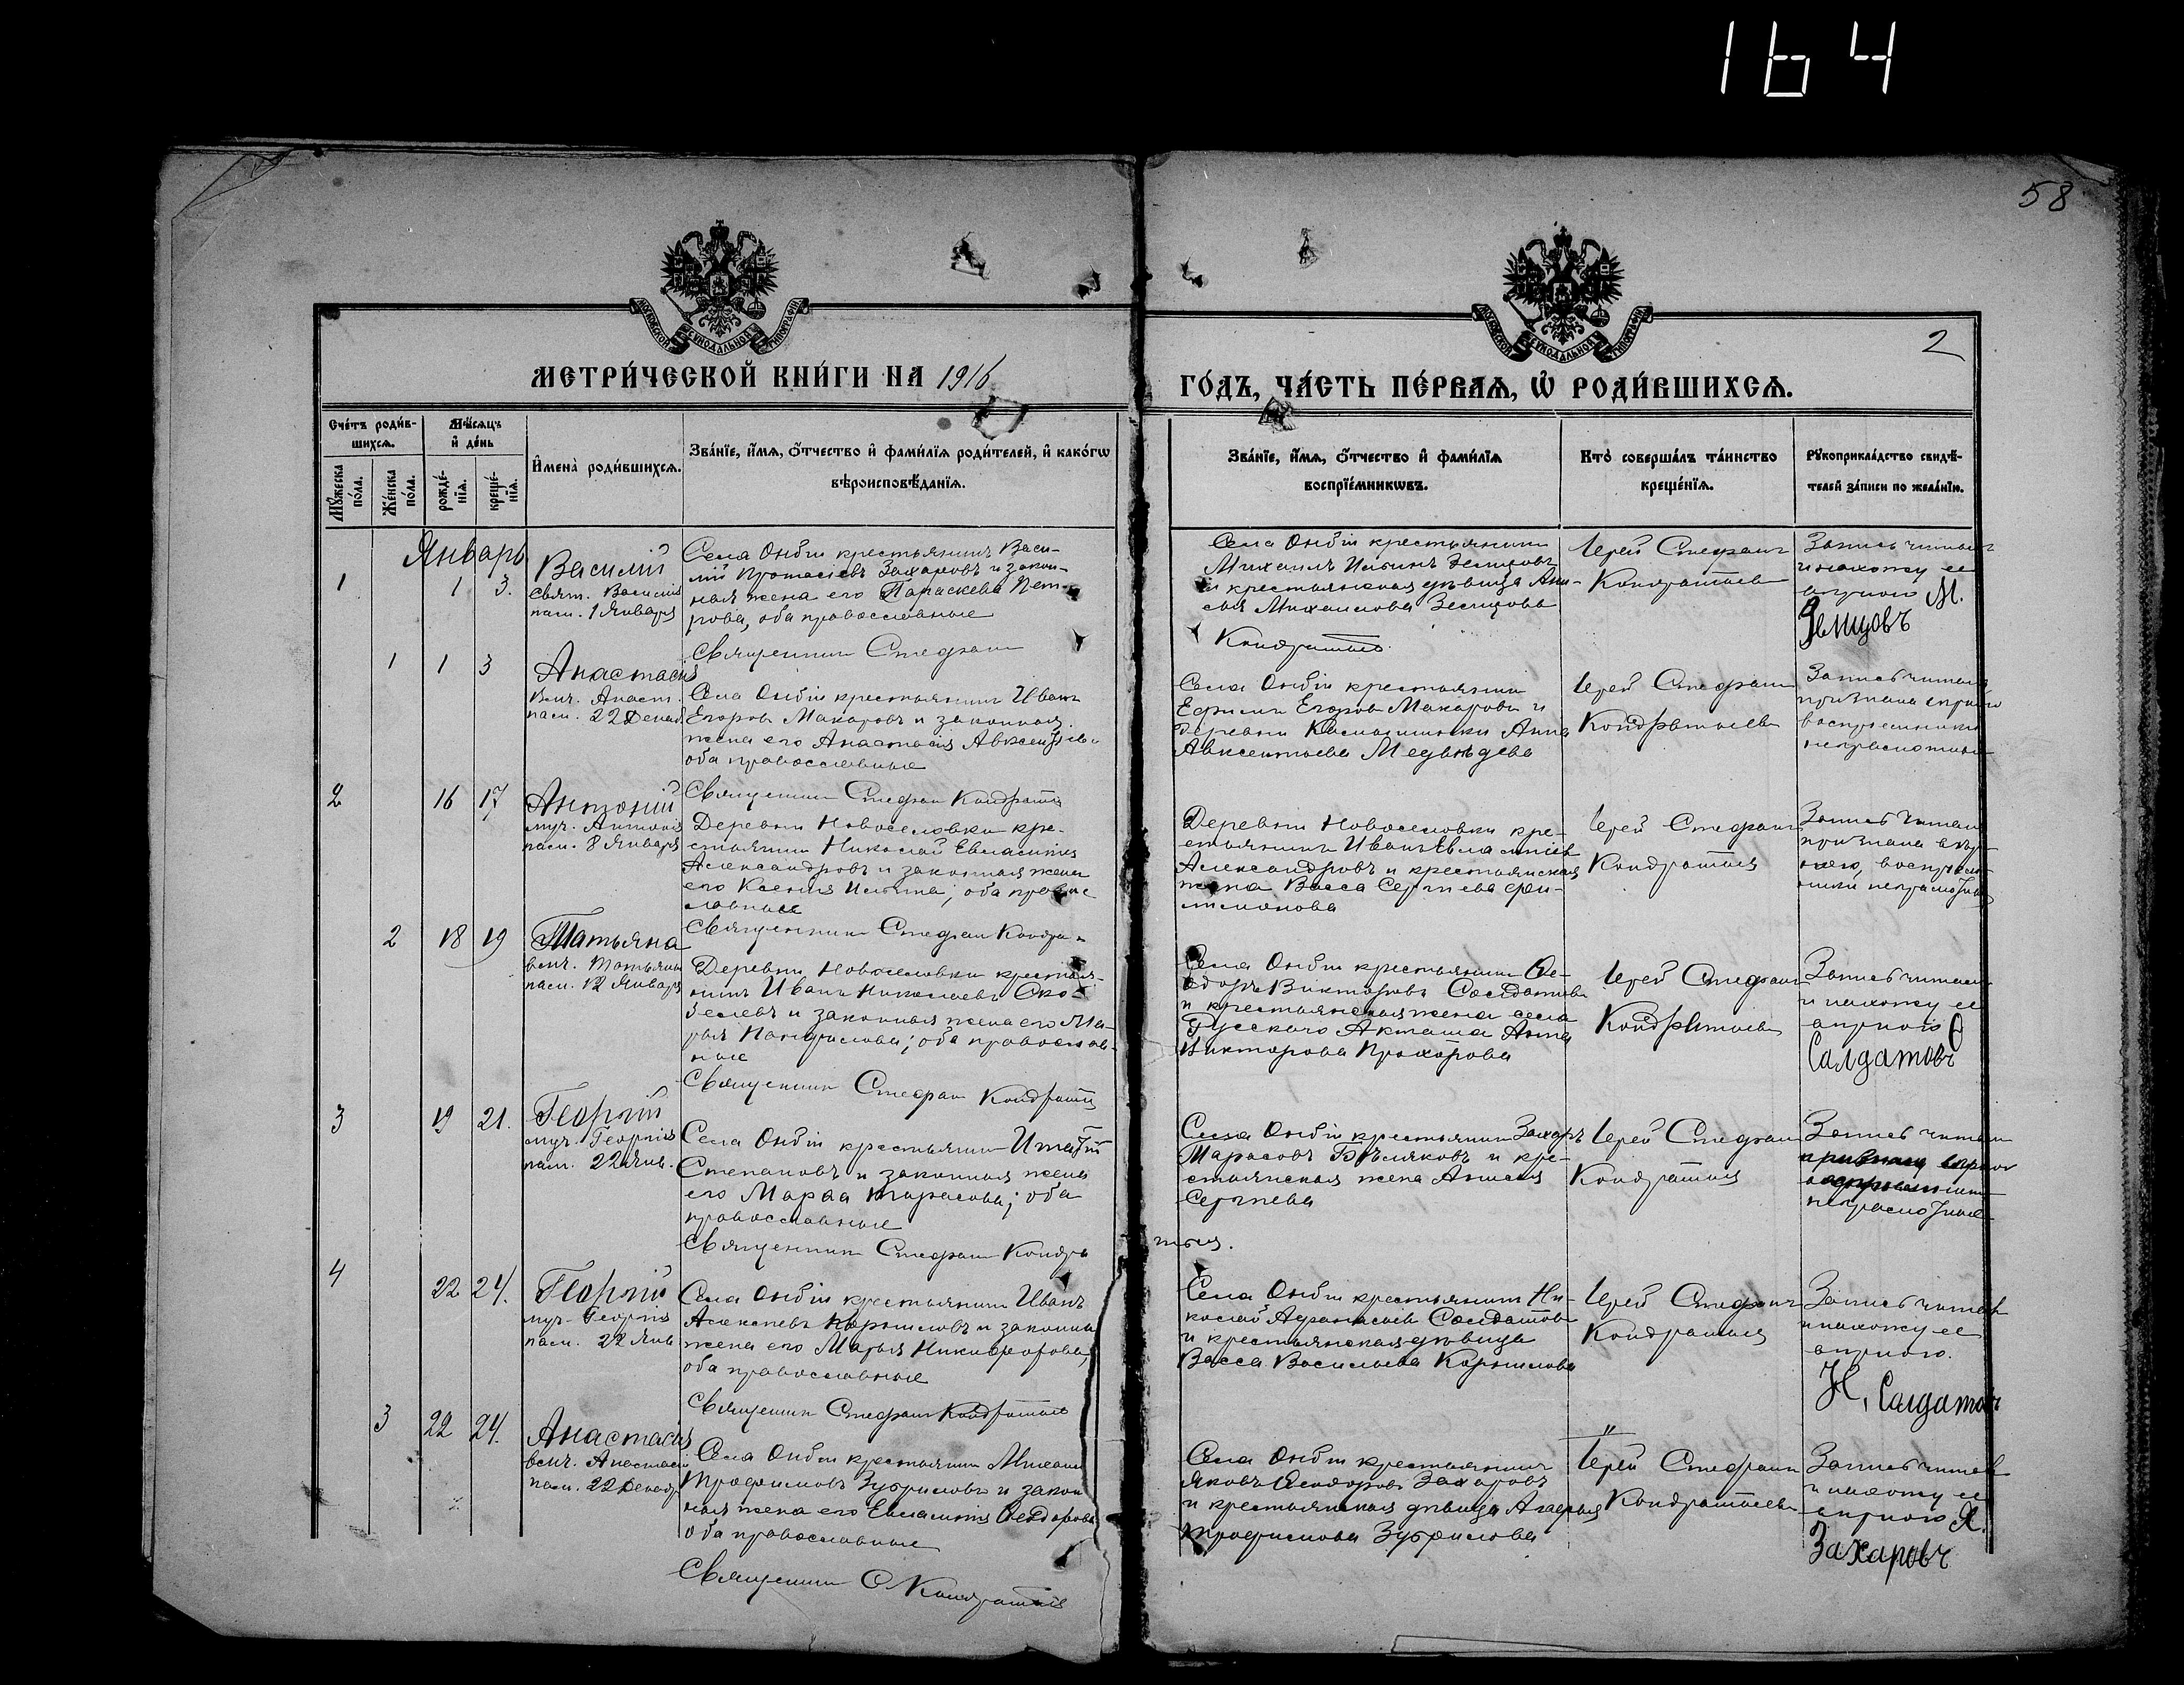 164
58
2
МЕТРИ́ЧЕСКОЙ КНИ́ГИ НА 1916
ГО́ДЪ, ЧА́СТЬ ПЕ́РВАѦ, Ѡ҆ РОДИ́ВШИХСѦ.
Сче́тъ роди́в-
шихсѧ.
Мѣ́сѧцъ
и҆ де́нь
Мꙋ́жеска
по́ла.
Же́нска
по́ла.
рожде́-
нїѧ.
креще́-
нїѧ.
И҆мена̀ роди́вшихсѧ.
Зва́нїе, и҆́мѧ, ѻ҆́тчество и҆ фами́лїѧ роди́телей, и҆ како́гѡ
вѣроисповѣ́данїѧ.
Зва́нїе, и҆́мѧ, ѻ҆́тчество и҆ фами́лїѧ
воспрїе́мникѡвъ.
Кто̀ соверша́лъ та́инство
креще́нїѧ.
Рꙋкоприкла́дство свидѣ́-
телей за́писи по жела́нїю.
Январь
1
1 3.
Василій
Свят. Василія
пам. 1 Января
крестьянинъ Васи-
лій Протасіевъ Захаровъ и закон-
ная жена его Параскева Пет-
рова, оба православные
Священникъ Стефанъ
крестьянинъ
Михаилъ Ильинъ Земцовъ
и крестьянская дѣвица Ани-
сья Михаилова Земцова
Іерей Стефанъ
Кондратьевъ
Запись читалъ
и нахожу ее
вѣрною М.
Земцовъ
1 1 3
Анастасія
Влмч. Анаст.
пам. 22 Декаб.
крестьянинъ Иванъ
Егоровъ Макаровъ и законная
жена его Анастасія Авксентьева
оба православные
Священникъ Стефанъ
крестьянинъ
Ефимъ Егоровъ Макаровъ и
Деревни Анна
Авксентьева Медвѣдева
Іерей Стефанъ
Кондратьевъ
Запись читана
признана вѣрною
воспріемники
неграмотные
2 16 17
Антоній
муч. Антонія
пам. 8 Января
Деревни Новоселовки кре-
стьянинъ Николай Евлампіевъ
Александровъ и законная жена
его Ксенія Ильина; оба право-
славные
Священникъ Стефанъ
Деревни Новоселовки кре-
стьянинъ Иванъ Евлампіевъ
Александровъ и крестьянская
жена Васса Сергѣева Фи-
лимонова
Іерей Стефанъ
Кондратьевъ
Запись читана
признана вѣр-
ною, воспріем-
ники неграмотны
2 18 19
Татьяна
влмч. Татьяны
пам. 12 Января
Деревни Новоселовки крестья-
нинъ Иванъ Николаевъ Ско-
белевъ и законная жена его Ма-
рья Панфилова; оба православ-
ные
Священникъ Стефанъ
крестьянинъ Ѳе-
одоръ Викторовъ Солдатовъ
и крестьянская жена села
Русскаго Акташа Анна
Викторова Прохорова
Іерей Стефанъ
Кондратьевъ
Запись читалъ
и нахожу ее
вѣрною Ѳ
Салдатовъ
3 19 21.
Георгій
муч. Георгія
пам. 22 Янв.
крестьянинъ Игнатій
Степановъ и законная жена
его Марѳа Тарасова; оба
православные
Священникъ Стефанъ
крестьянинъ Захаръ
Тарасовъ Бѣляковъ и кре-
стьянская жена Анисія
Сергѣева
Іерей Стефанъ
Кондратьевъ
Запись читана
признана вѣрною
воспріемники
неграмотные
4 22 24.
Георгій
муч. Георгія
пам. 22 Янв.
крестьянинъ Иванъ
Алексѣевъ Корниловъ и законная
жена его Марья Никифорова,
оба православные
Священникъ Стефанъ Кондратьевъ
крестьянинъ Ни-
колай Афанасьевъ Солдатовъ
и крестьянская дѣвица
Васса Васильева Корнилова
Іерей Стефанъ
Кондратьевъ
Запись читалъ
и нахожу ее
вѣрною.
Н. Салдатовъ
3 22 24.
Анастасія
влмч. Анастасіи
пам. 22 Декабр.
крестьянинъ Михаилъ
Трофимовъ Зубриловъ и закон
ная жена его Евлампія Ѳеодорова
оба православные
Священникъ С. Кондратьевъ
крестьянинъ
Яковъ Ѳеодоровъ Захаровъ
и крестьянская дѣвица Агафья
Трофимова Зубрилова
Іерей Стефанъ
Кондратьевъ
Запись читалъ
и нахожу ее
вѣрною Я.
Захаровъ